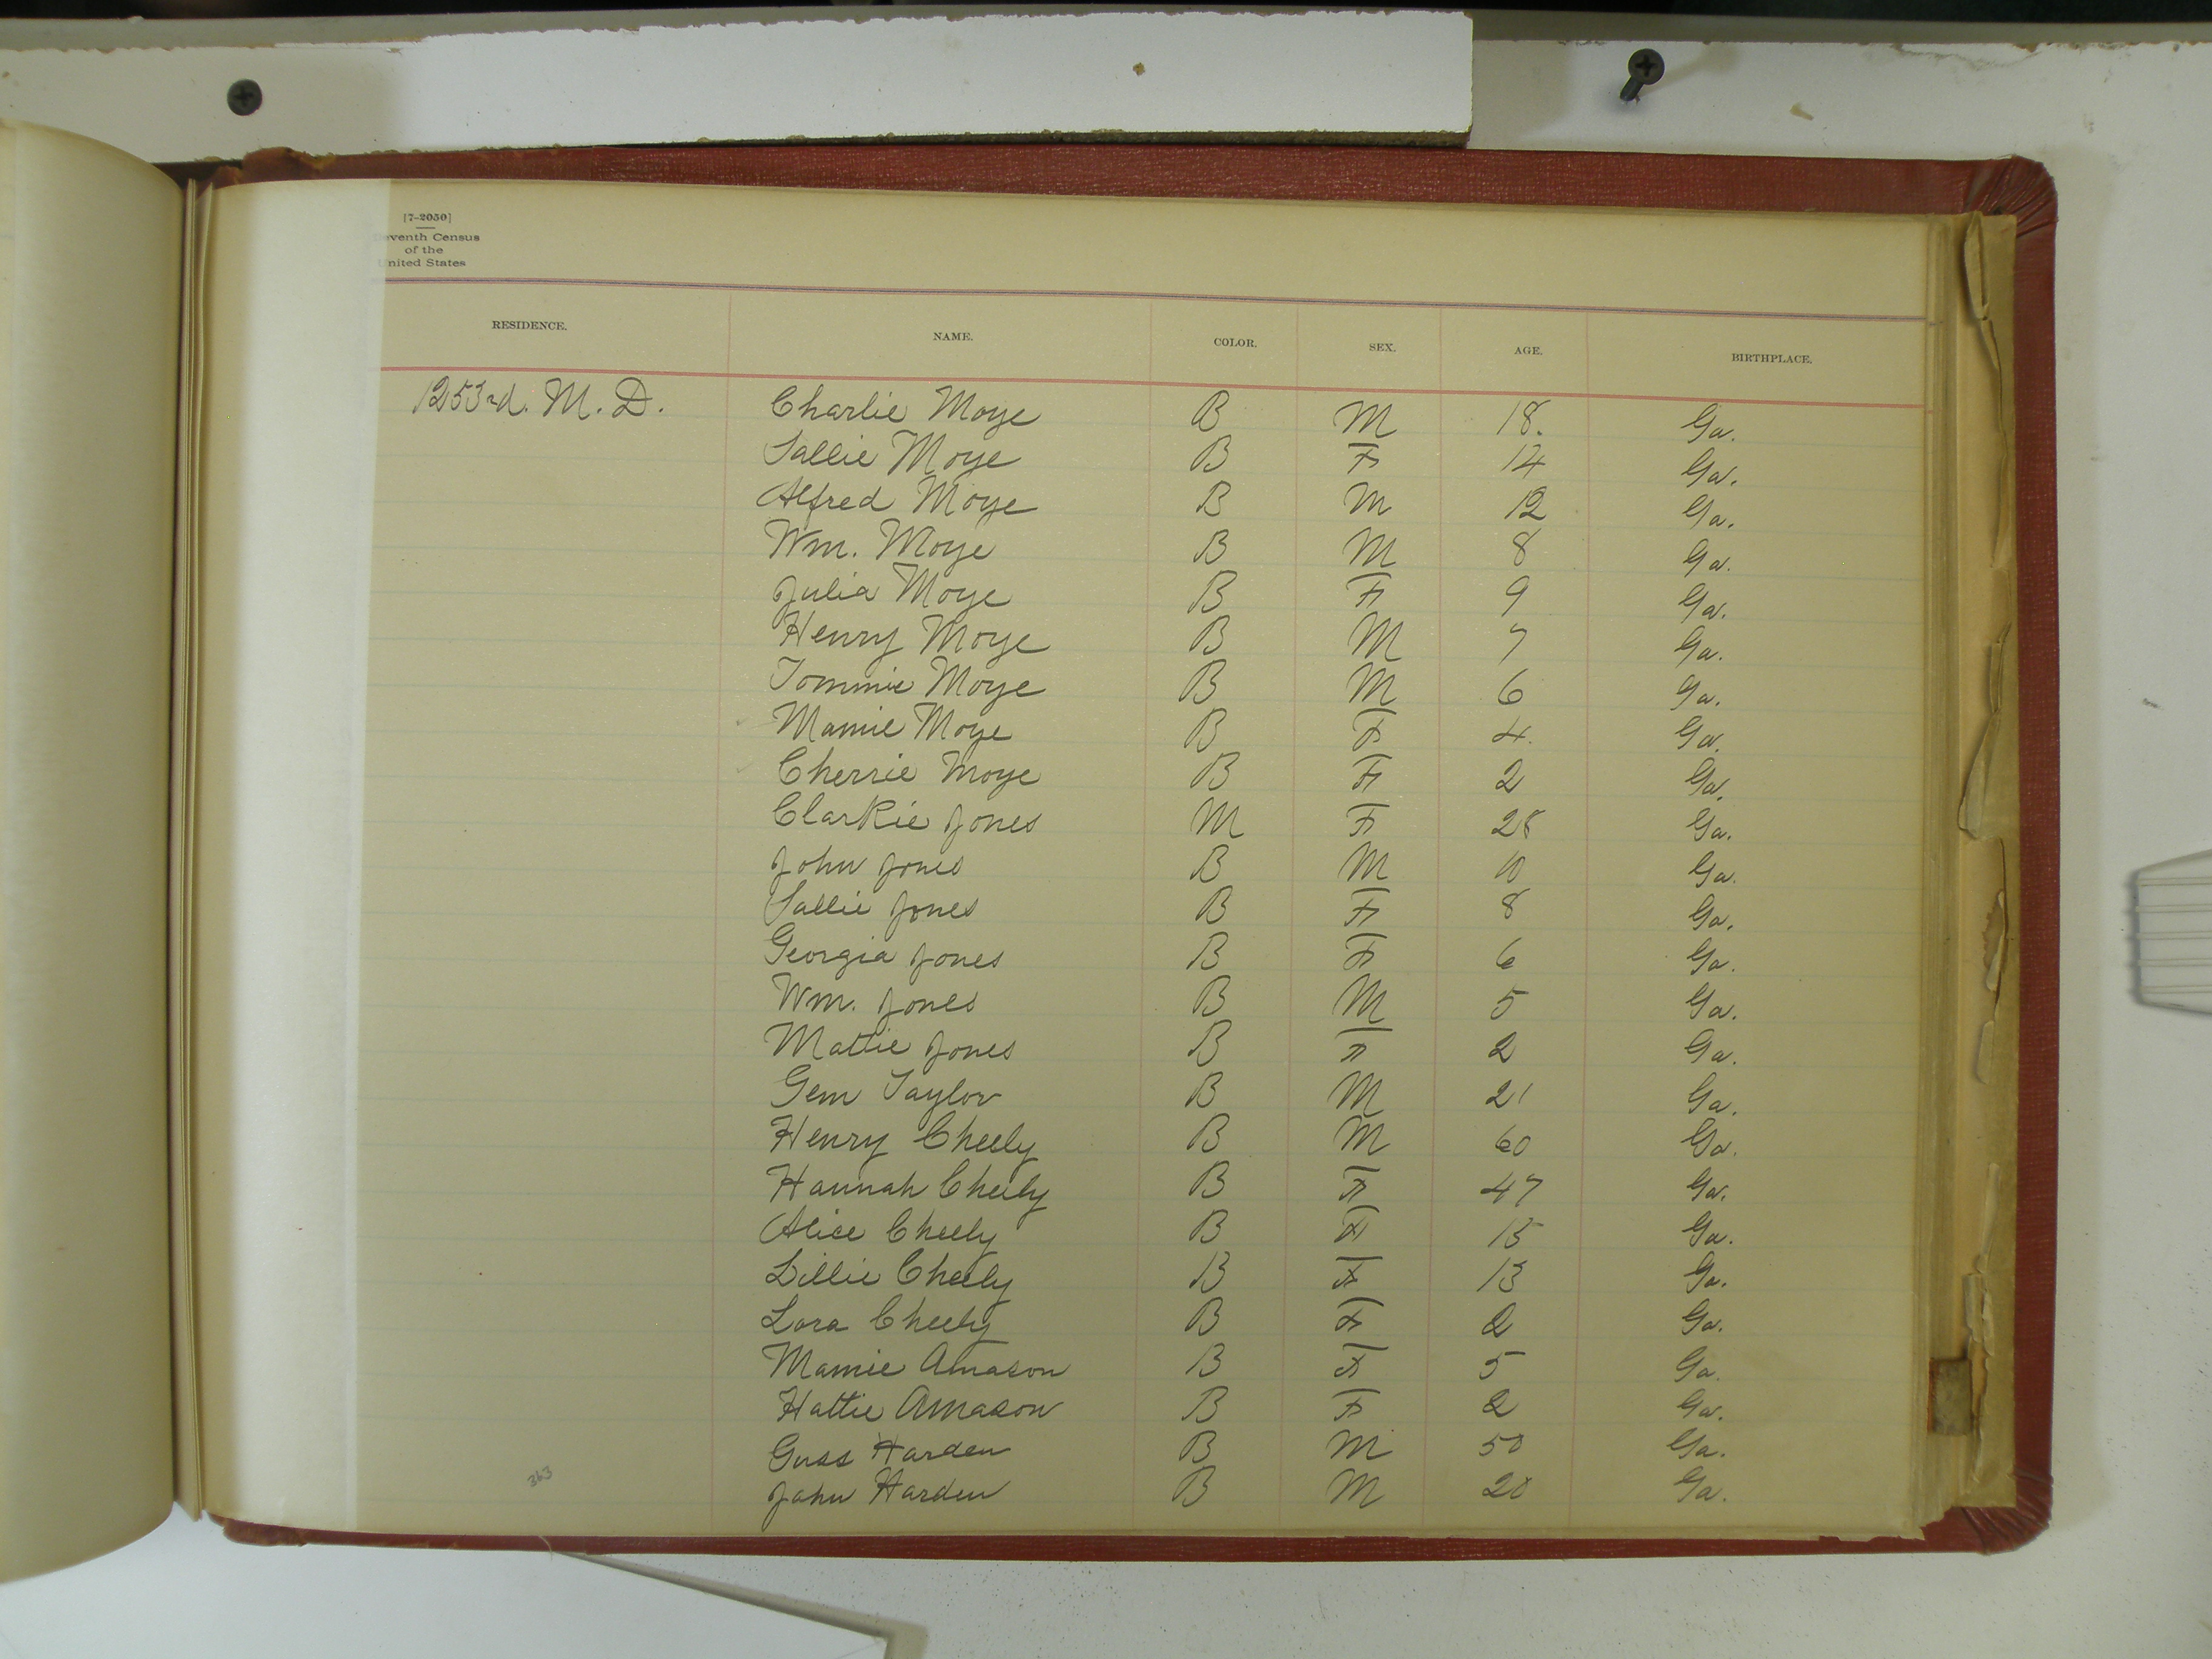 [7-2050]
eventh Census
of the
United States
RESIDENCE. NAME. COLOR. SEX. AGE. BIRTHPLACE.
1253rd. M. D. Charlie Moye B M 18. Ga.
Sallie Moye B F 14 Ga.
Alfred Moye B M 12 Ga.
Wm. Moye B M 8 Ga.
Julia Moye B F 9 Ga.
Henry Moye B M 7 Ga.
Tommie Moye B M 6 Ga.
Mamie Moye B F 4. Ga.
Cherrie Moye B F 2 Ga.
Clarkie Jones M F 28 Ga.
John Jones B M 10 Ga.
Sallie Jones B F 8 Ga.
Georgia Jones B F 6 Ga.
Wm. Jones B M 5 Ga.
Mattie Jones B F 2 Ga.
Gem Taylor B M 21 Ga.
Henry Cheely B M 60 Ga.
Hannah Cheely B F 47 Ga.
Alice Cheely B F 15 Ga.
Lillie Cheely B F 13 Ga.
Lora Cheely B F 2 Ga.
Mamie Amason B F 5 Ga.
Hattie Amason B F 2 Ga.
Guss Harden B M 50 Ga.
John Harden B M 20 Ga.
363